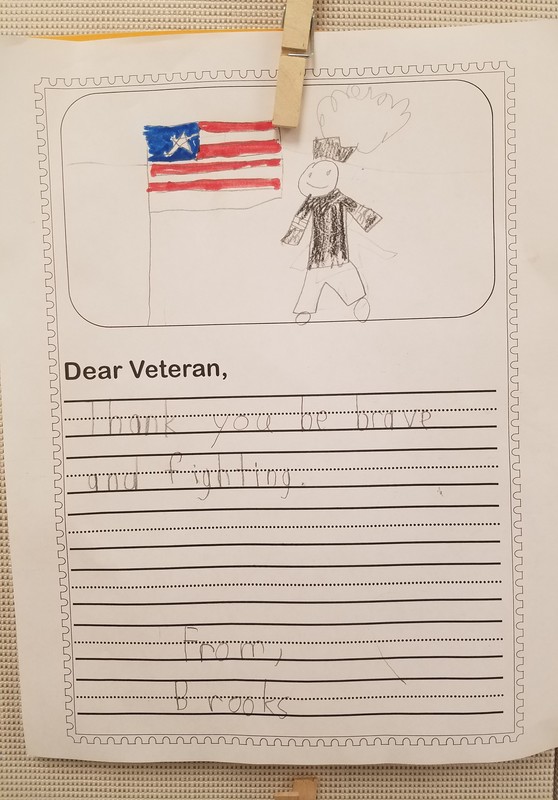 Dear Veteran,
Thank you be brave
and fighting.
From,
Brooks